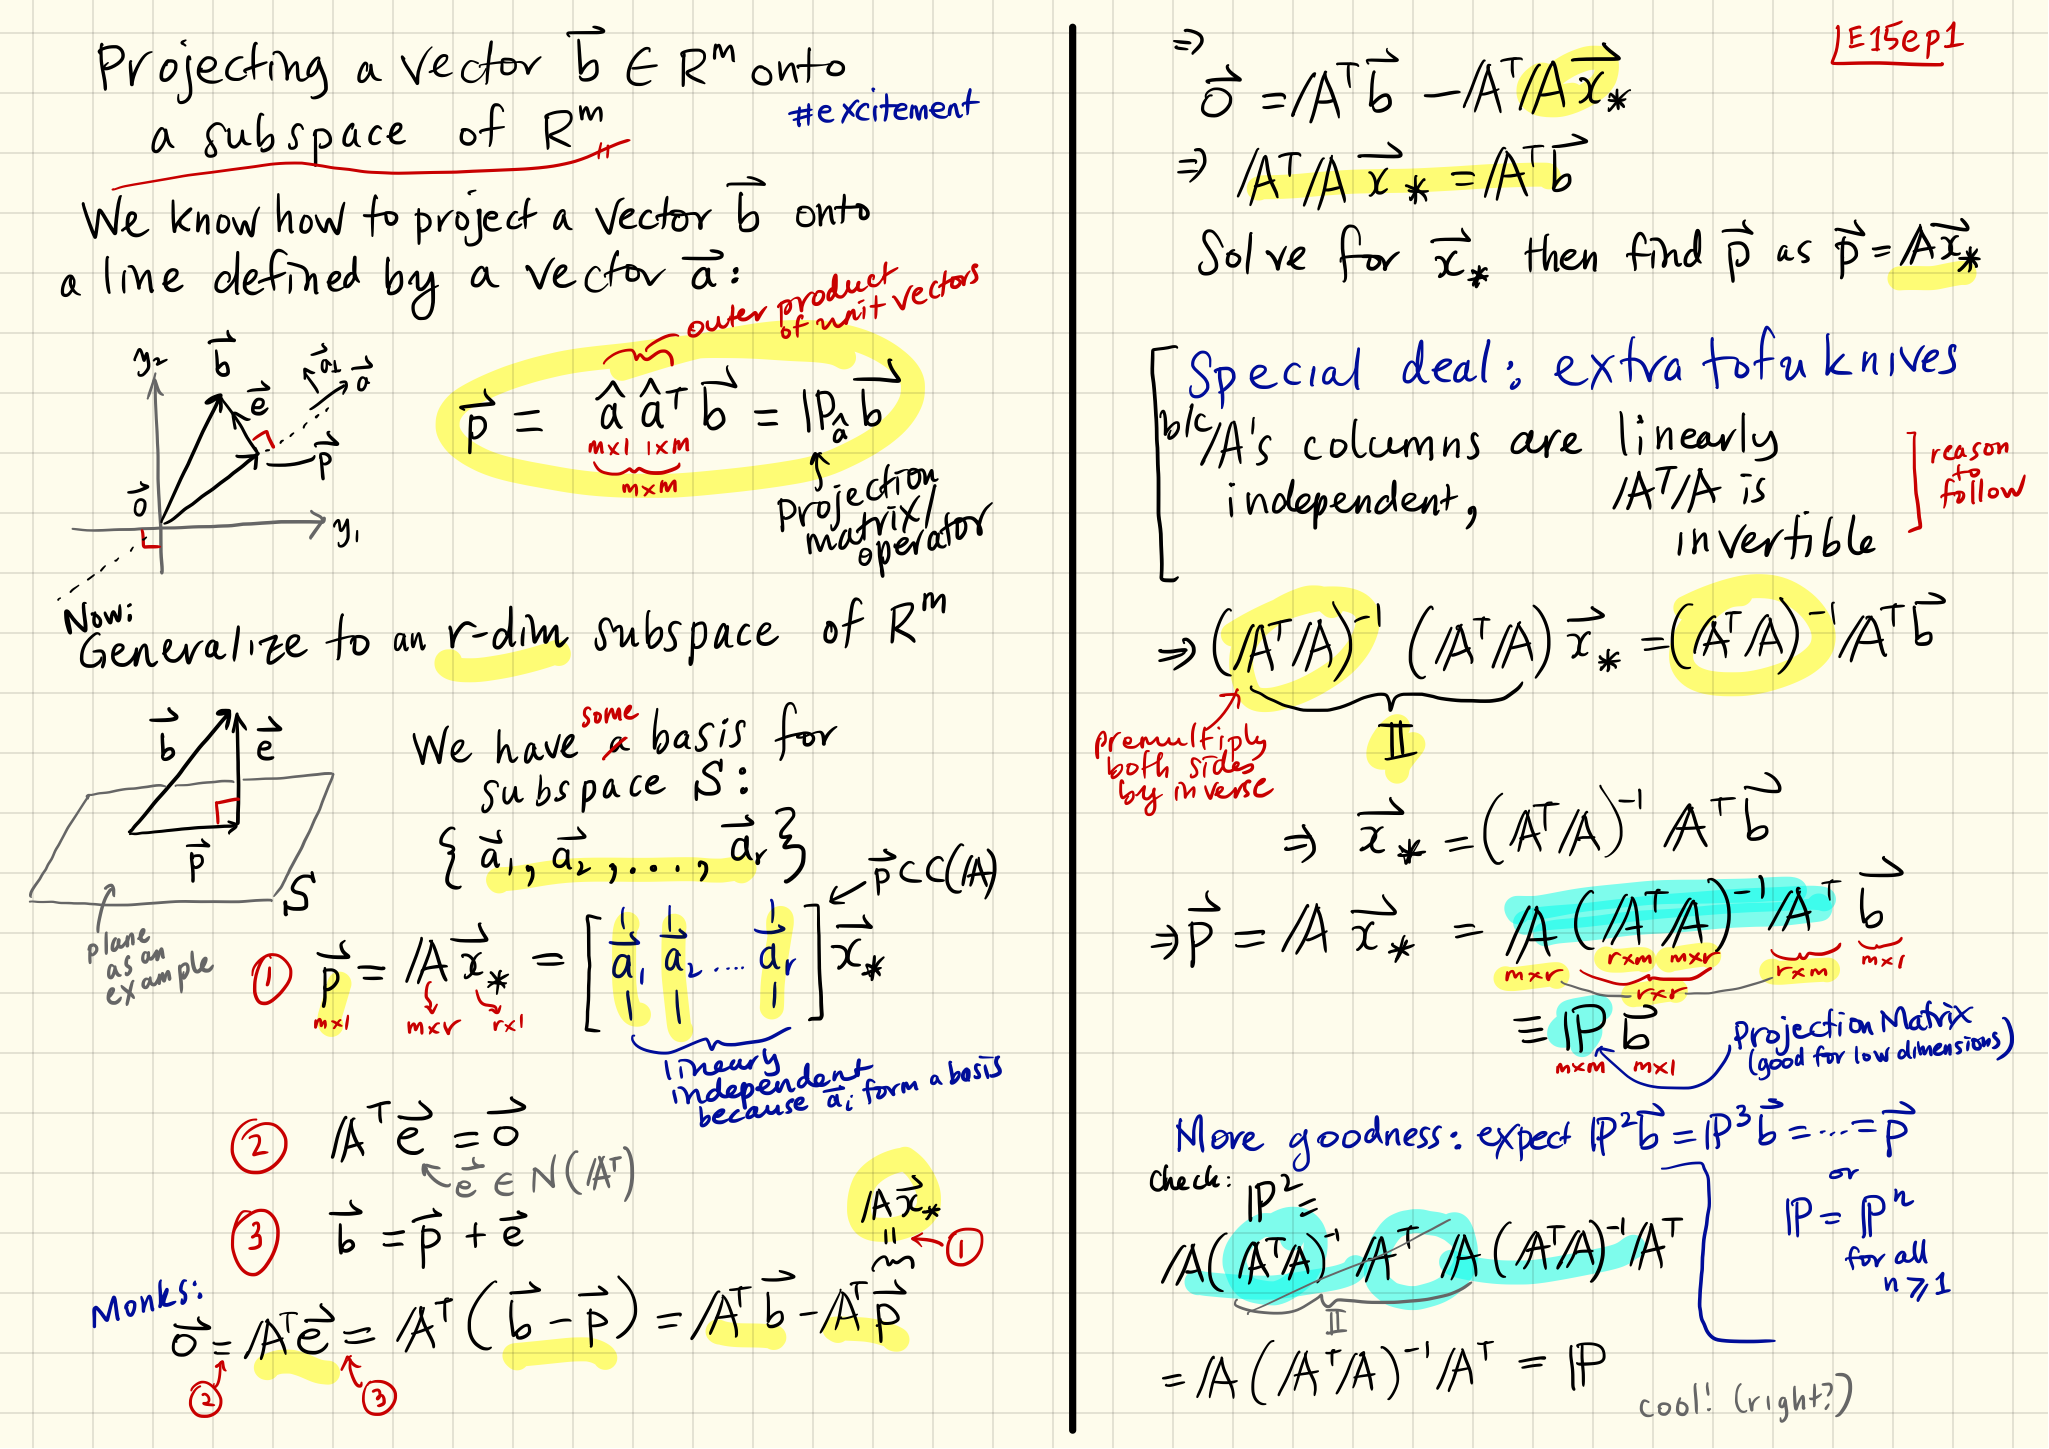 Projecting a vector b⃗ ∈ R^m onto
a subspace of R^m
#excitement
We know how to project a vector b⃗ onto
a line defined by a vector a⃗:
outer product
of unit vectors
y₂
b⃗
a⃗⊥
a⃗
e⃗
p⃗
0⃗
y₁
p⃗ = â â^T b⃗ = ℙ_â b⃗
m×1 1×m
m×m
Projection
matrix/
operator
Now:
Generalize to an r-dim subspace of R^m
b⃗
e⃗
p⃗
S
plane
as an
example
some
We have a basis for
subspace S:
{ a⃗₁, a⃗₂, ..., a⃗r }
p⃗ ⊂ C(𝔸)
① p⃗ = 𝔸 x⃗* = [ a⃗₁ a⃗₂ .... a⃗r ] x⃗*
m×1 m×r r×1
linearly
independent
because a⃗i form a basis
② 𝔸^T e⃗ = 0⃗
e⃗ ∈ N(𝔸^T)
③ b⃗ = p⃗ + e⃗
𝔸x⃗*
= ①
Monks:
0⃗ = 𝔸^T e⃗ = 𝔸^T (b⃗ - p⃗) = 𝔸^T b⃗ - 𝔸^T p⃗
② ③
E15ep1
⇒
0⃗ = 𝔸^T b⃗ - 𝔸^T 𝔸 x⃗*
⇒ 𝔸^T 𝔸 x⃗* = 𝔸^T b⃗
Solve for x⃗* then find p⃗ as p⃗ = 𝔸x⃗*
Special deal: extra tofu knives
b/c 𝔸's columns are linearly
independent, 𝔸^T𝔸 is
invertible
reason
to
follow
⇒ (𝔸^T𝔸)^-1 (𝔸^T𝔸) x⃗* = (𝔸^T𝔸)^-1 𝔸^T b⃗
𝕀
premultiply
both sides
by inverse
⇒ x⃗* = (𝔸^T𝔸)^-1 𝔸^T b⃗
⇒ p⃗ = 𝔸 x⃗* = 𝔸 (𝔸^T𝔸)^-1 𝔸^T b⃗
m×r r×m m×r r×m m×1
r×r
≡ ℙ b⃗
m×m m×1
Projection Matrix
(good for low dimensions)
More goodness: expect ℙ²b⃗ = ℙ³b⃗ = ... = p⃗
or
ℙ = ℙ^n
for all
n ≥ 1
Check: ℙ² =
𝔸(𝔸^T𝔸)^-1 𝔸^T 𝔸 (𝔸^T𝔸)^-1 𝔸^T
𝕀
= 𝔸 (𝔸^T𝔸)^-1 𝔸^T = ℙ
cool! (right?)